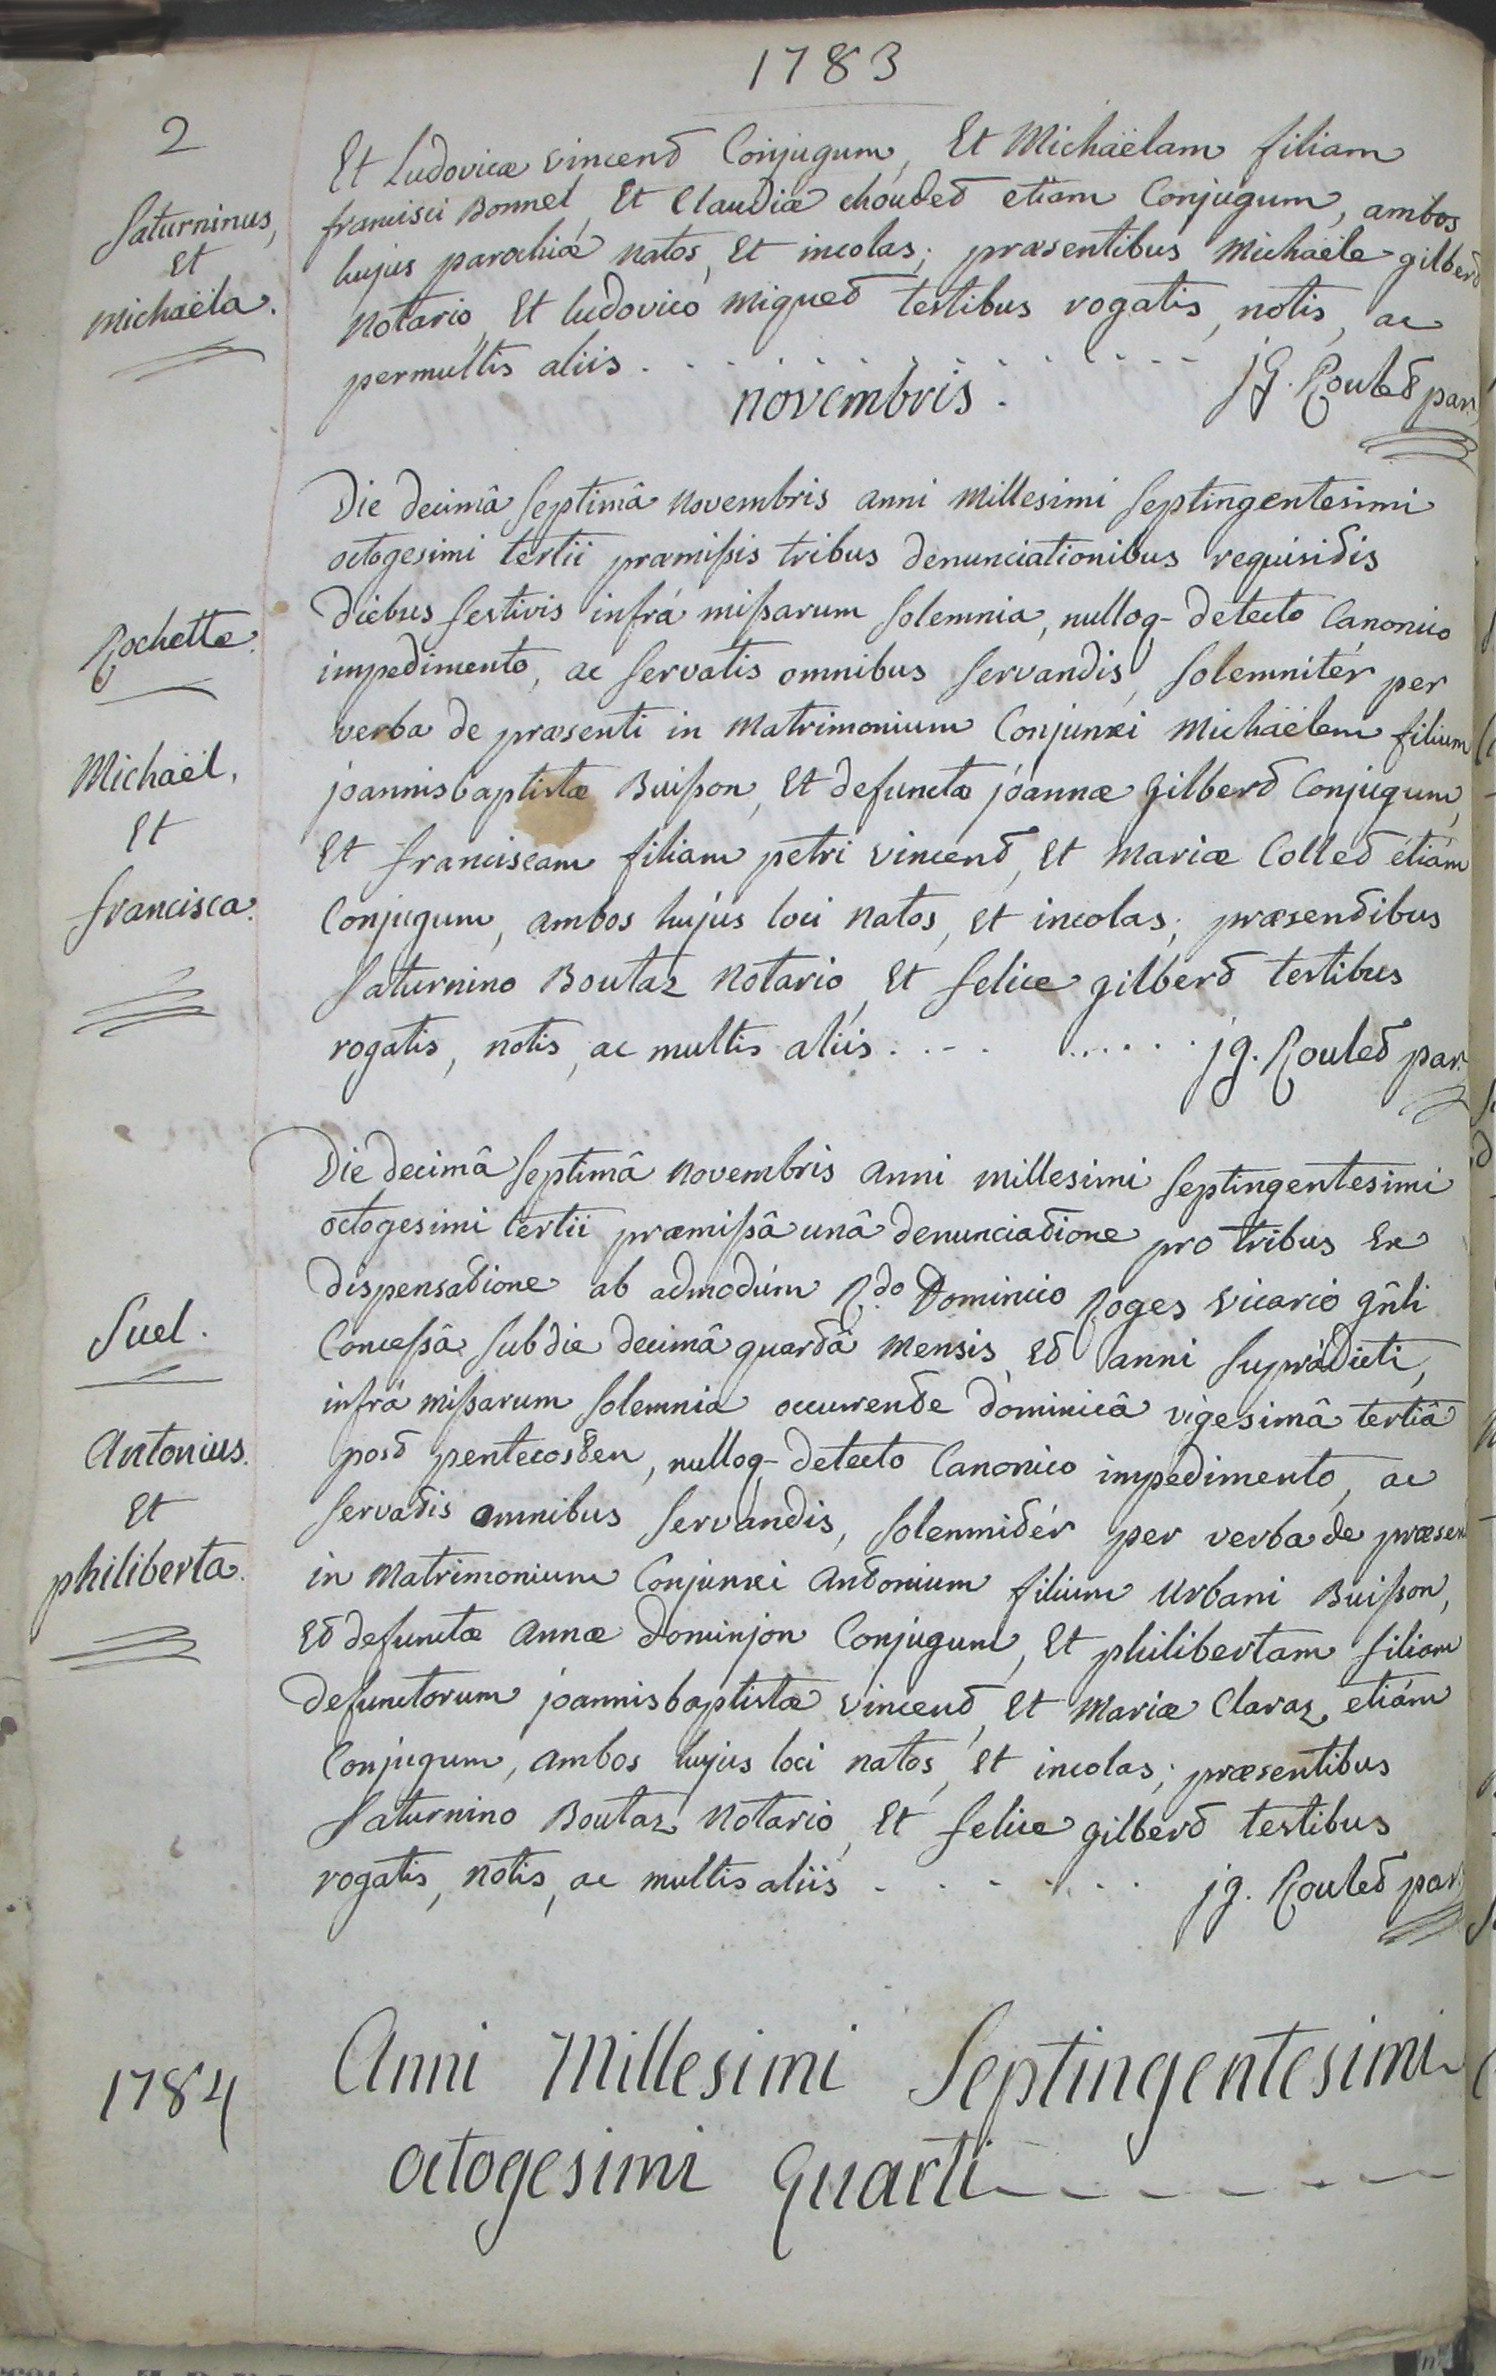 1783
2
Saturninus,
Et
michaëla.
Et Ludovicæ vincent Conjugum, Et Michaëlam filiam
francisci Bonnel, Et Claudiæ choudet etiam Conjugum, ambos
hujus parochiæ natos, Et incolas; præsentibus michaële gilbert
notario, Et ludovico miquet testibus rogatis, notis, ac
permultis aliis . . . . . . . . . . . . . . jg. Roulet par.
novembris.
Rochette.
Michaël,
Et
francisca.
Die decimâ septimâ novembris anni millesimi septingentesimi
octogesimi tertii præmissis tribus denunciationibus requisitis
diebus festivis infrá missarum solemnia, nulloq- detecto Canonico
impedimento, ac servatis omnibus servandis, solemnitér per
verba de præsenti in matrimonium Conjunxi michaëlem filium
joannisbaptistæ Buisson, Et defunctæ joannæ gilbert Conjugum,
Et franciscam filiam petri vincent, Et mariæ Collet etiám
Conjugum, ambos hujus loci natos, Et incolas; præsentibus
Saturnino Boutaz notario, Et felice gilbert testibus
rogatis, notis, ac multis aliis . . - . . . . . . . jg. Roulet par.
Suel.
Antonius.
Et
philiberta.
Die decimâ septimâ novembris anni millesimi septingentesimi
octogesimi tertii præmissâ unâ denunciatione pro tribus Ex
dispensatione ab admodúm R.do Domino Roges vicario gñli
Concessâ sub die decimâ quartâ mensis, Et anni suprádicti,
infrá missarum solemnia occurente dominicâ vigesimâ tertiâ
post pentecosten, nulloq- detecto Canonico impedimento, ac
servatis omnibus servandis, solemnitér per verba de præsen
in matrimonium Conjunxi antonium filium urbani Buisson,
Et defunctæ annæ dominjon Conjugum, Et philibertam filiam
defunctorum joannisbaptistæ vincent, Et mariæ Claraz, etiám
Conjugum, ambos hujus loci natos, Et incolas; præsentibus
Saturnino Boutaz notario, Et felice gilbert testibus
rogatis, notis, ac multis aliis . . . . . . . jg. Roulet par.
1784
Anni Millesimi Septingentesimi
octogesimi Quarti - - - - - -